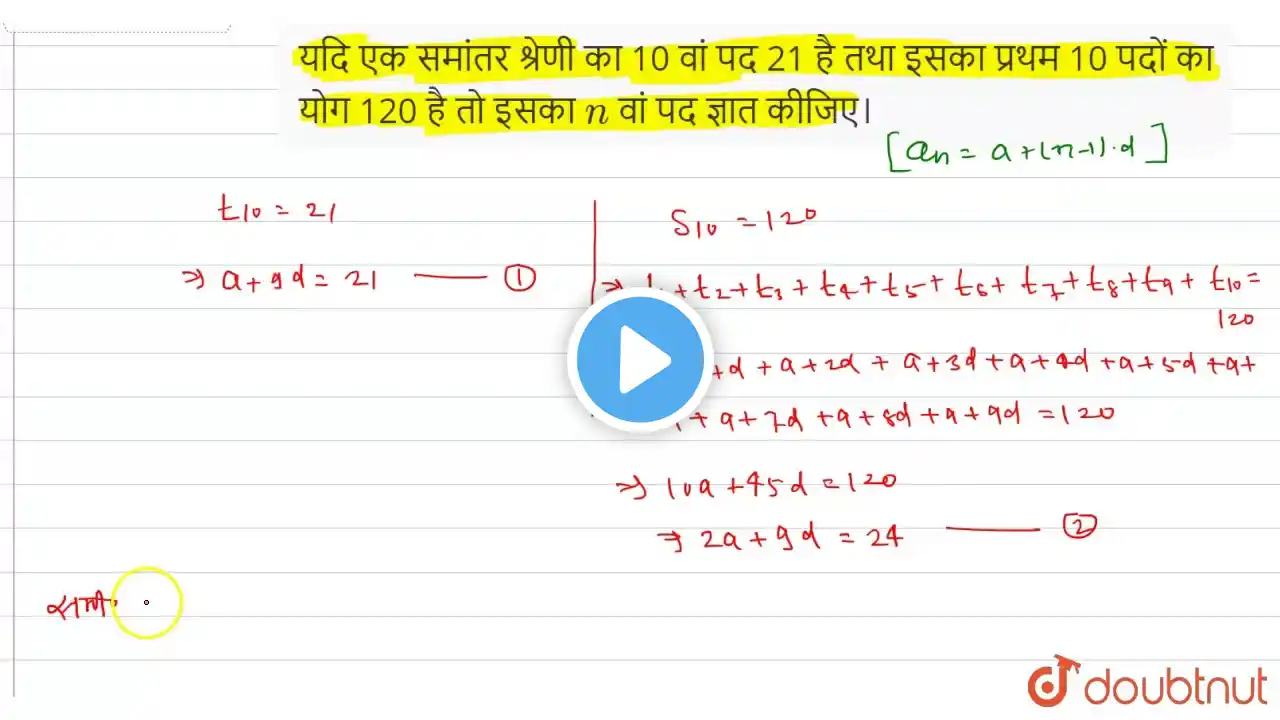 यदि एक समांतर श्रेणी का 10 वां पद 21 है तथा इसका प्रथम 10 पदों का
योग 120 है तो इसका n वां पद ज्ञात कीजिए।
[an = a+(n-1).d]
t10 = 21
⇒ a+9d = 21 —— ①
S10 = 120
⇒ +t2+t3+t4+t5+t6+t7+t8+t9+t10=
120
+d+a+2d+a+3d+a+4d+a+5d+a+
+a+7d+a+8d+a+9d=120
⇒ 10a+45d=120
⇒ 2a+9d=24 —— ②
समी
doubtnut